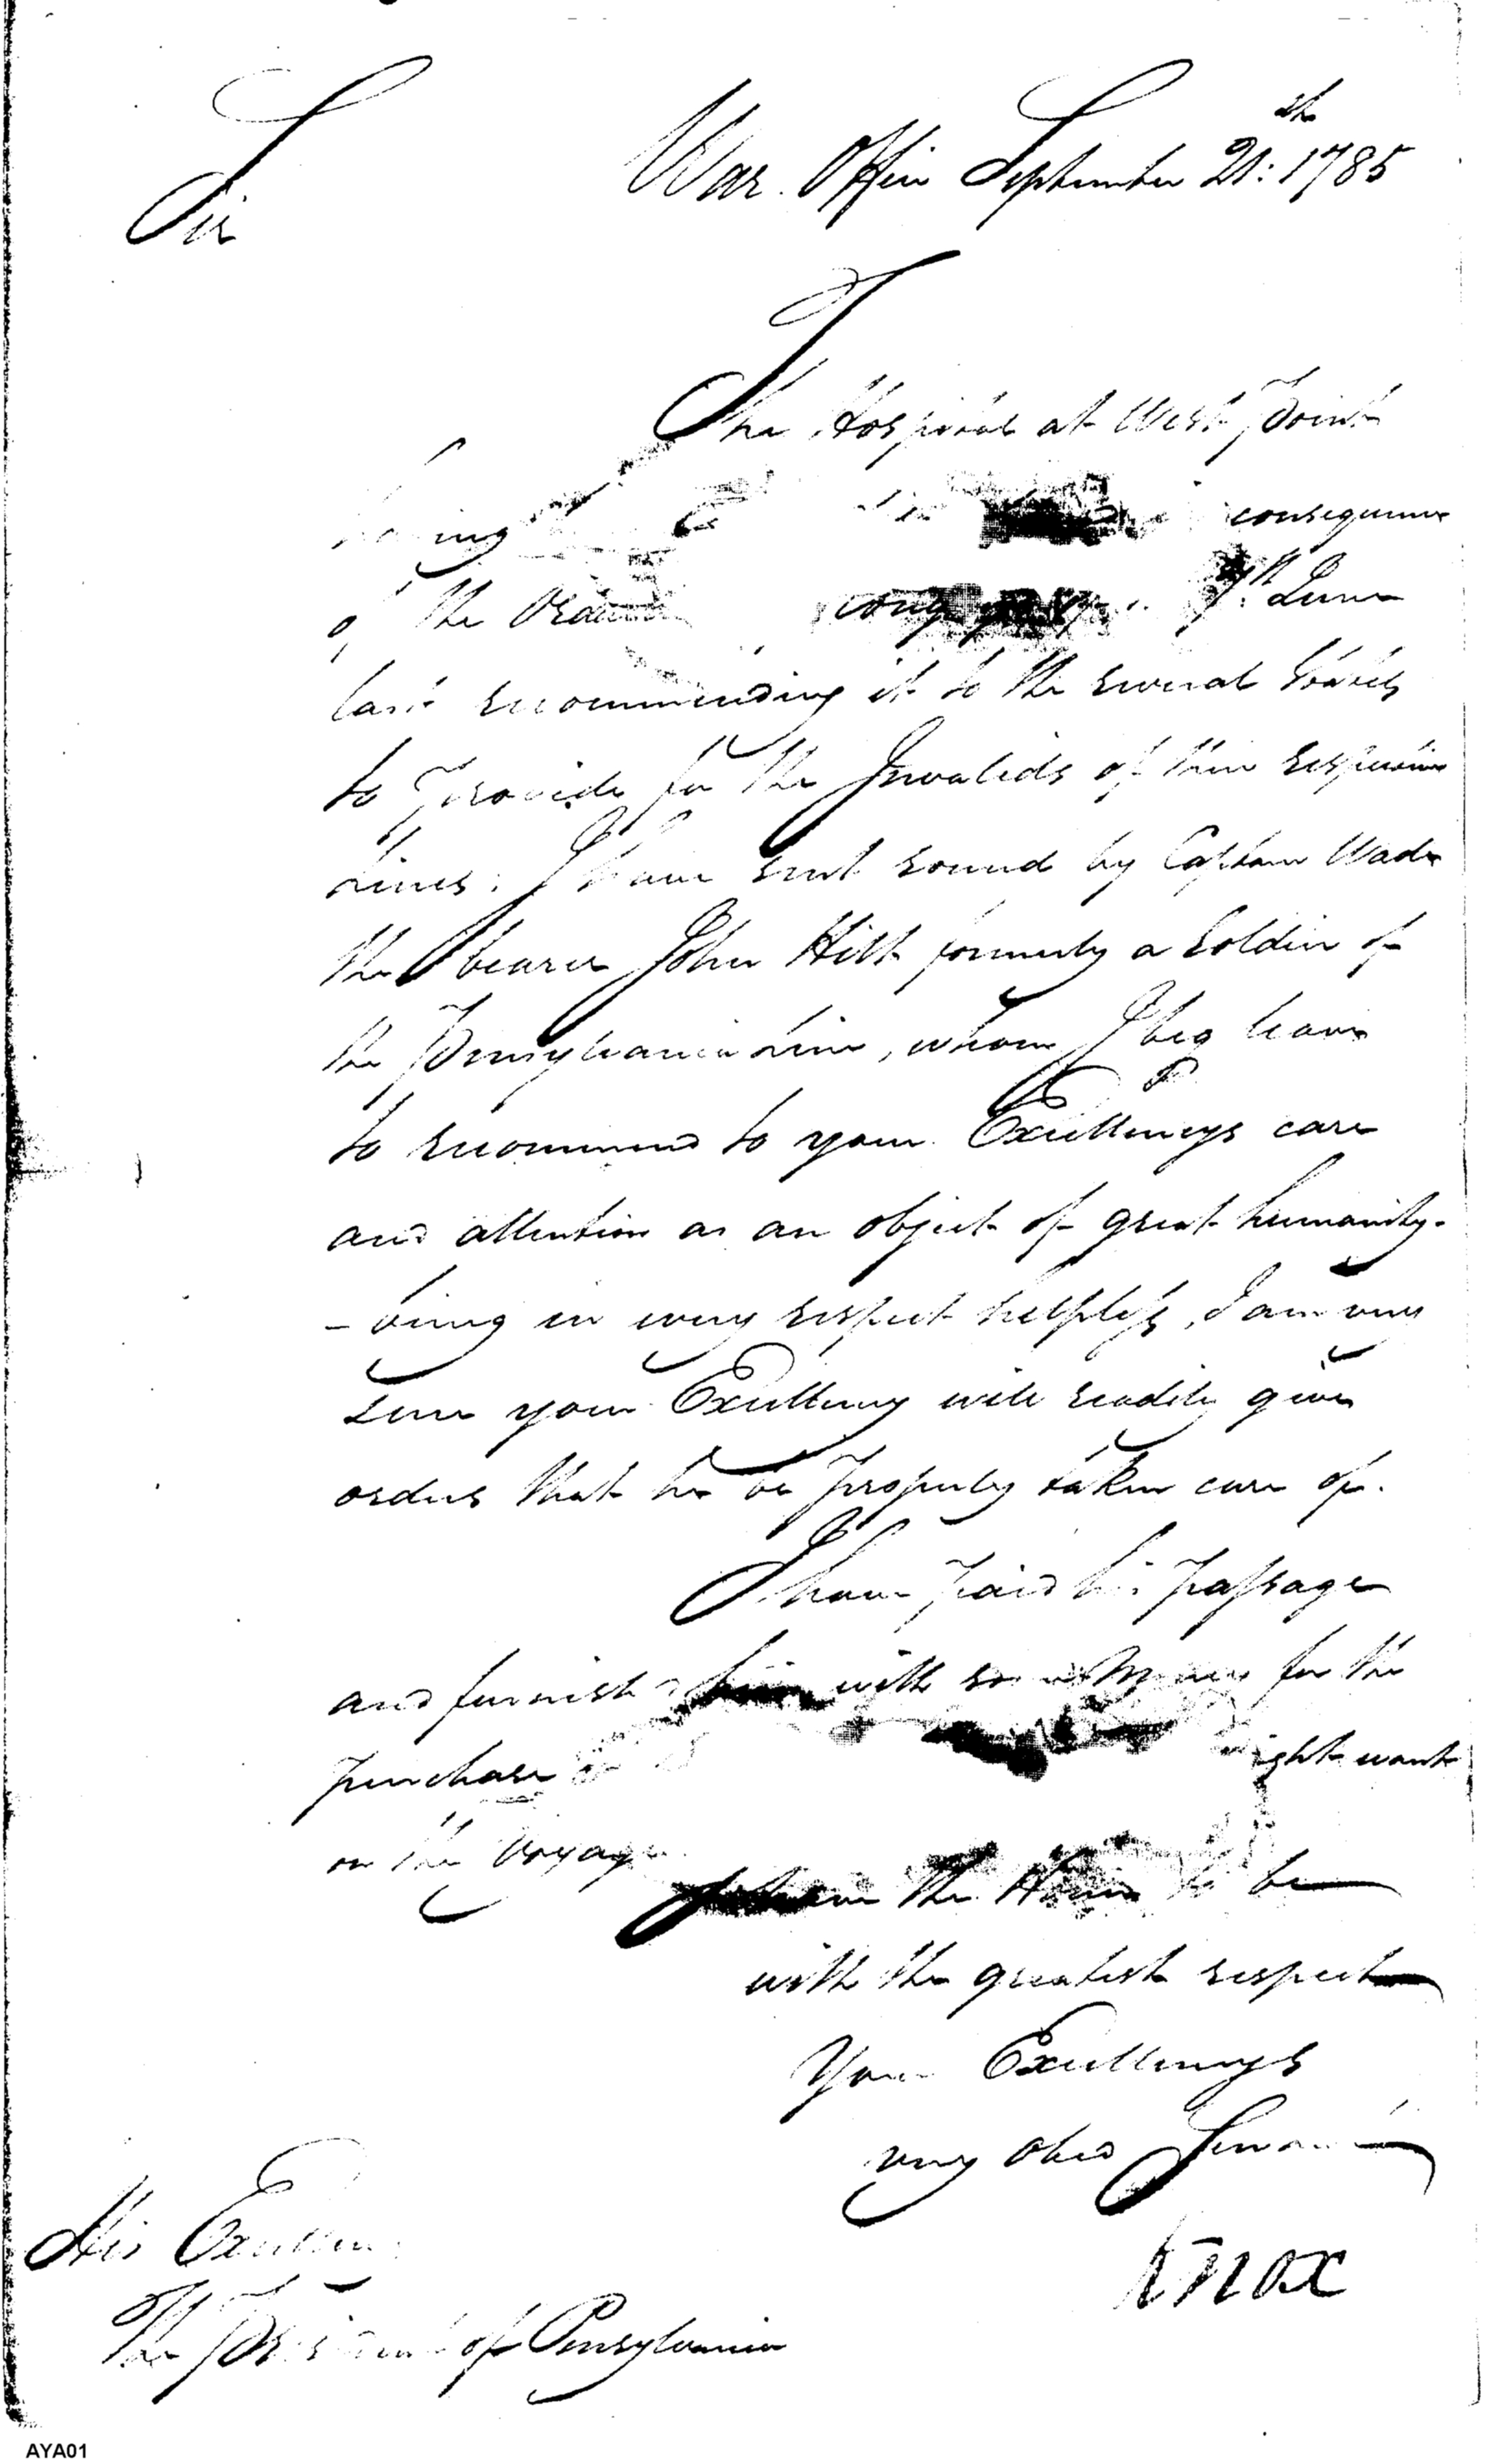 War Office September 21:st 1785
Sir
The Hospital at West Point
consequence
of the 7th. June
last recommending it to the several States
to provide for the Invalids of their respective
Lines: I have sent round by Captain Wade
the bearer John Hill formerly a Soldier of
the Pennsylvania Line, whom I beg leave
to recommend to your Excellencys care
and attention as an object of great humanity.
– being in every respect helpless, I am very
sure your Excellency will readily give
orders that he be properly taken care of.
I have paid his passage
and furnished him with some Money for the
purchase might want
on the Voyage
I have the Honor to be
with the greatest respect
Your Excellencys
very Obed Servant
Knox
His Excellency
The President of Pensylvania
AYA01